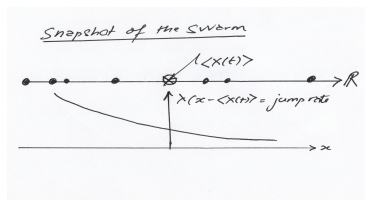 Snapshot of the Swarm
<X(t)>
ℝ
λ(x-<X(t)> = jump rate
x